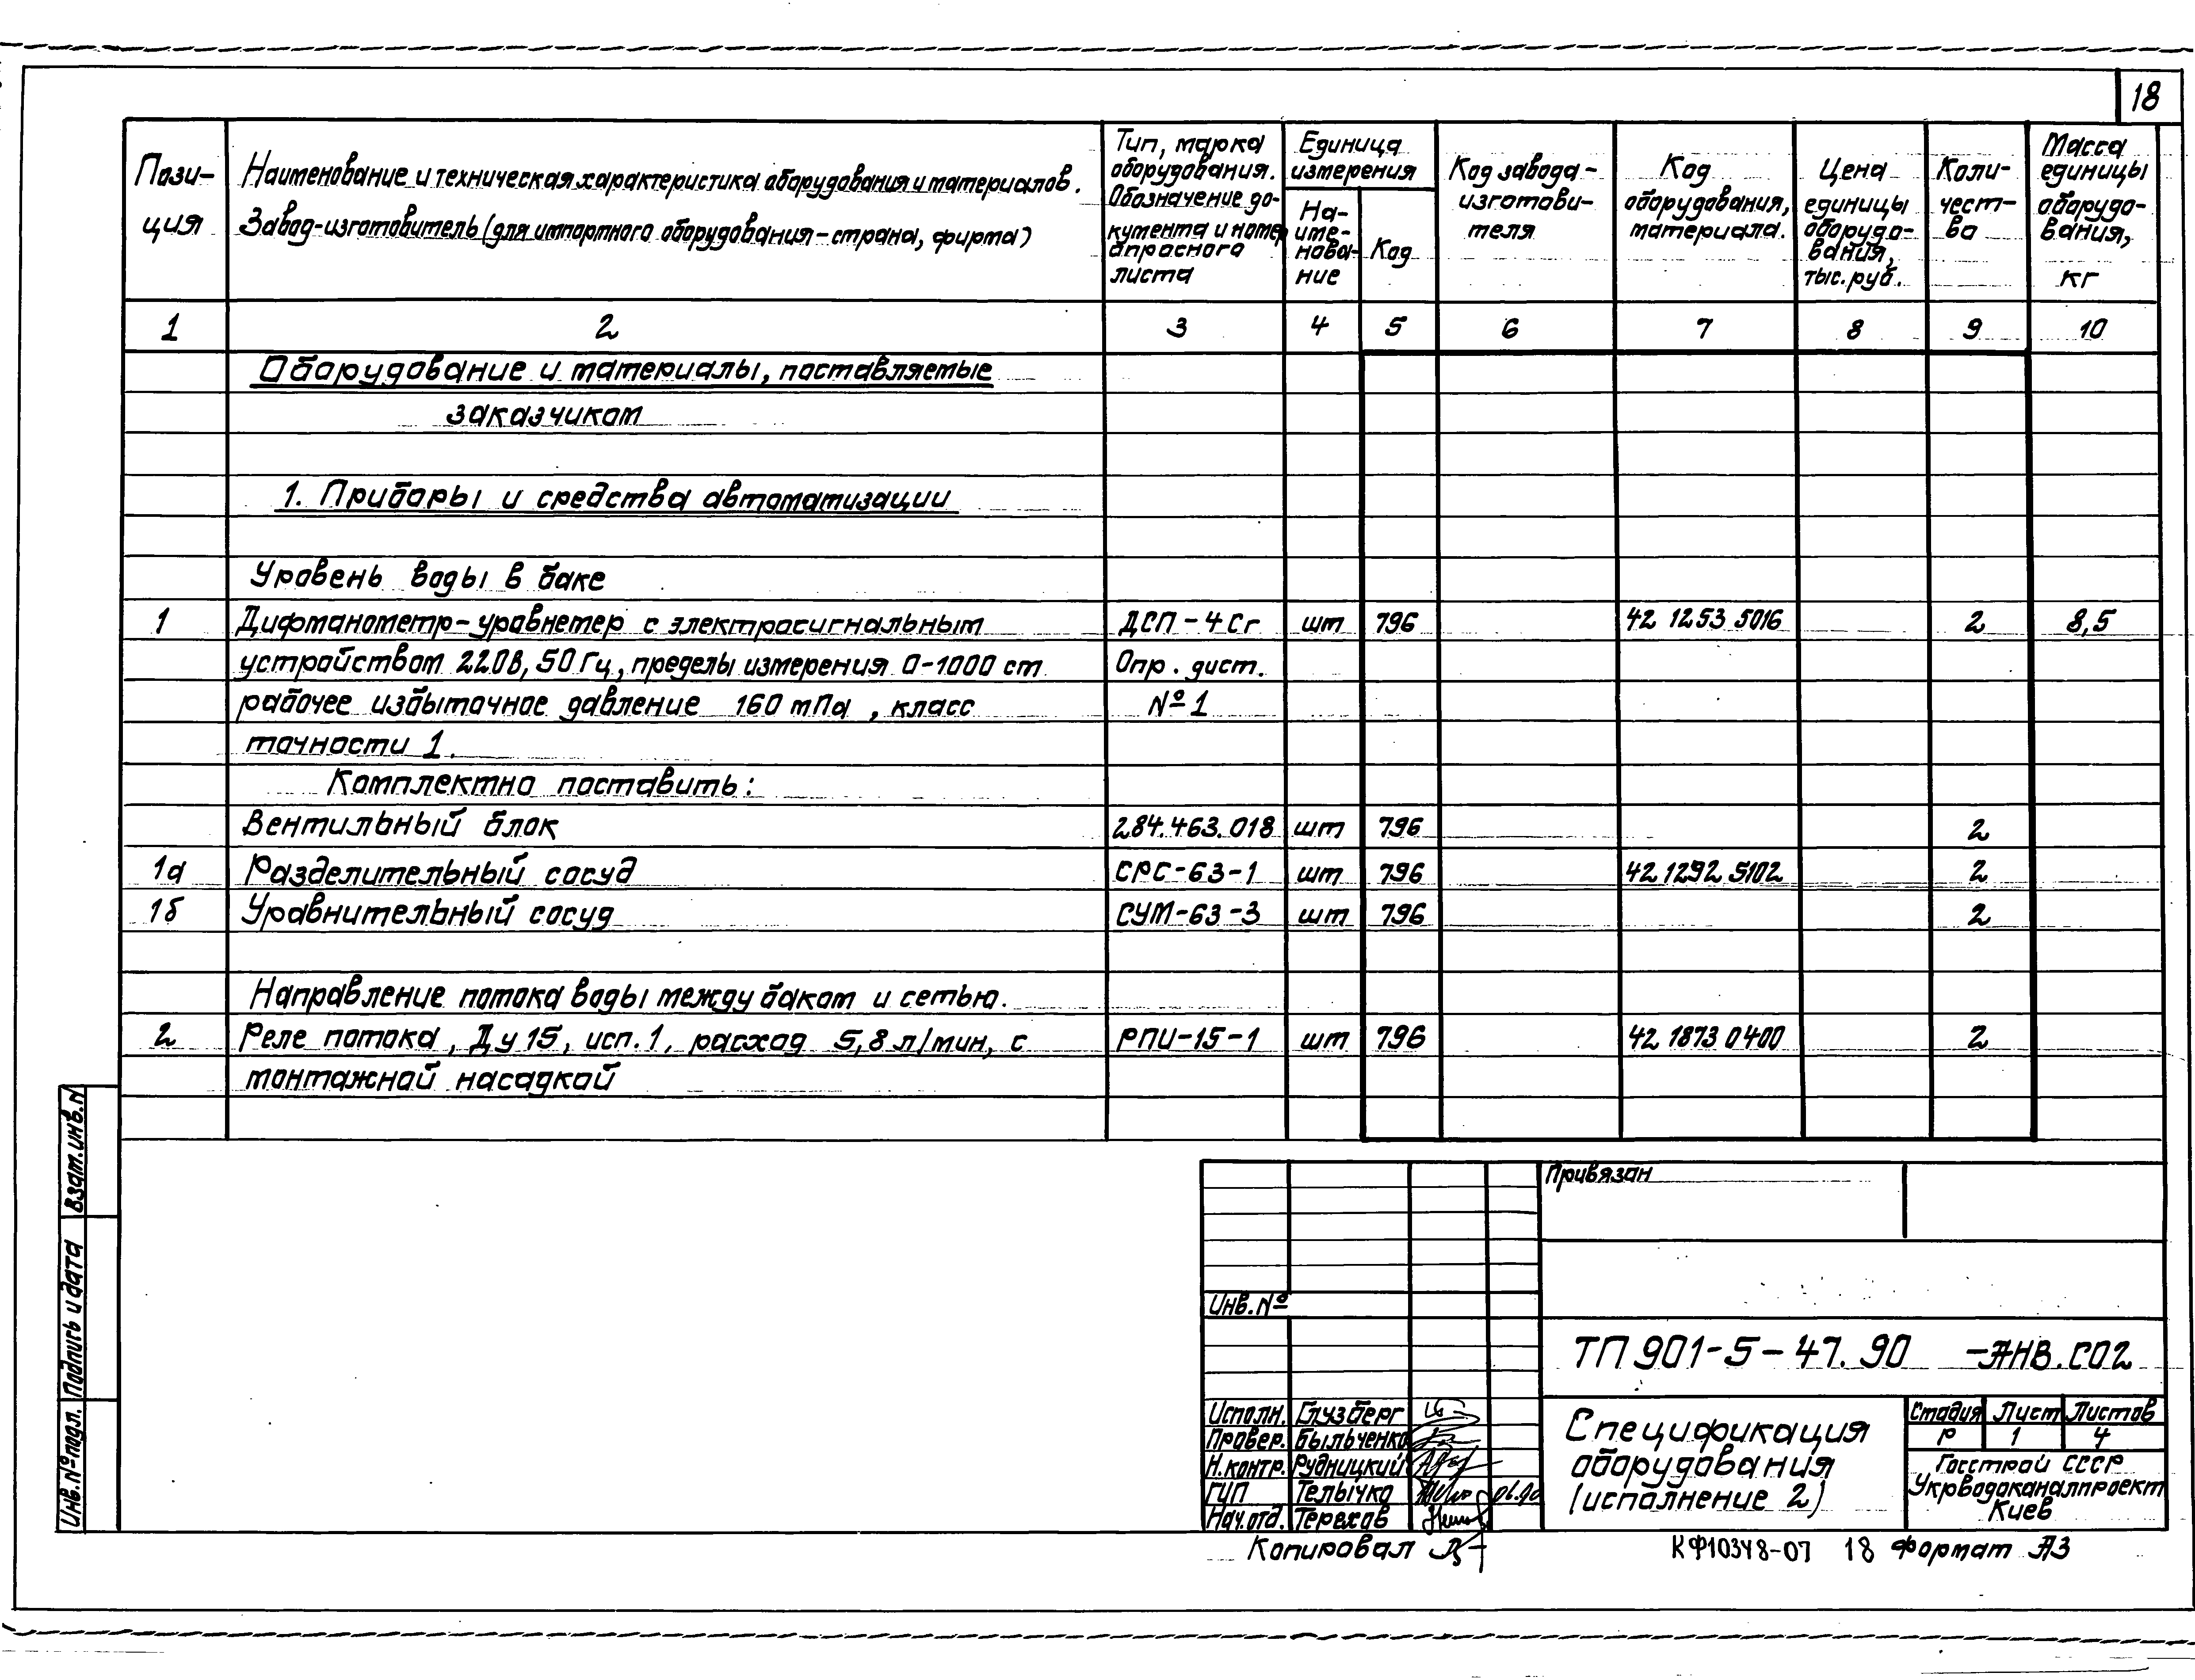 18
Пози-
ция
Наименование и техническая характеристика оборудования и материалов.
Завод-изготовитель (для импортного оборудования - страна, фирма)
Тип, марка
оборудования.
Обозначение до-
кумента и номер
опросного
листа
Единица
измерения
На-
име-
нова-
ние
Код
Код завода-
изготови-
теля
Код
оборудования,
материала.
Цена
единицы
оборудо-
вания,
тыс. руб.
Коли-
чест-
во
Масса
единицы
оборудо-
вания,
кг
1 2 3 4 5 6 7 8 9 10
Оборудование и материалы, поставляемые
заказчиком
1. Приборы и средства автоматизации
Уровень воды в баке
1 Дифманометр-уравнемер с электросигнальным ДСП-4Сг шт 796 42 1253 5016 2 8,5
устройством 220В, 50 Гц, пределы измерения 0-1000 см Опр. лист.
рабочее избыточное давление 160 мПа, класс №1
точности 1.
Комплектно поставить:
Вентильный блок 284.463.018 шт 796 2
1а Разделительный сосуд СРС-63-1 шт 796 42 1292 5102 2
1б Уравнительный сосуд СУМ-63-3 шт 796 2
Направление потока воды между баком и сетью.
2 Реле потока, Ду 15, исп. 1, расход 5,8 л/мин, с РПИ-15-1 шт 796 42 1873 0400 2
монтажной насадкой
Взам. инв. N
Подпись и дата
Инв. № подл.
Привязан
Инв. №
ТП 901-5-47.90 -АНВ.СО2
Исполн. Глузберг
Провер. Быльченко
Н. контр. Рудницкий
ГИП Телычко 06.90
Нач. отд. Терехов
Спецификация
оборудования
(исполнение 2)
Стадия Лист Листов
Р 1 4
Госстрой СССР
Укрводоканалпроект
Киев
Копировал
КФ10348-07 18 Формат А3